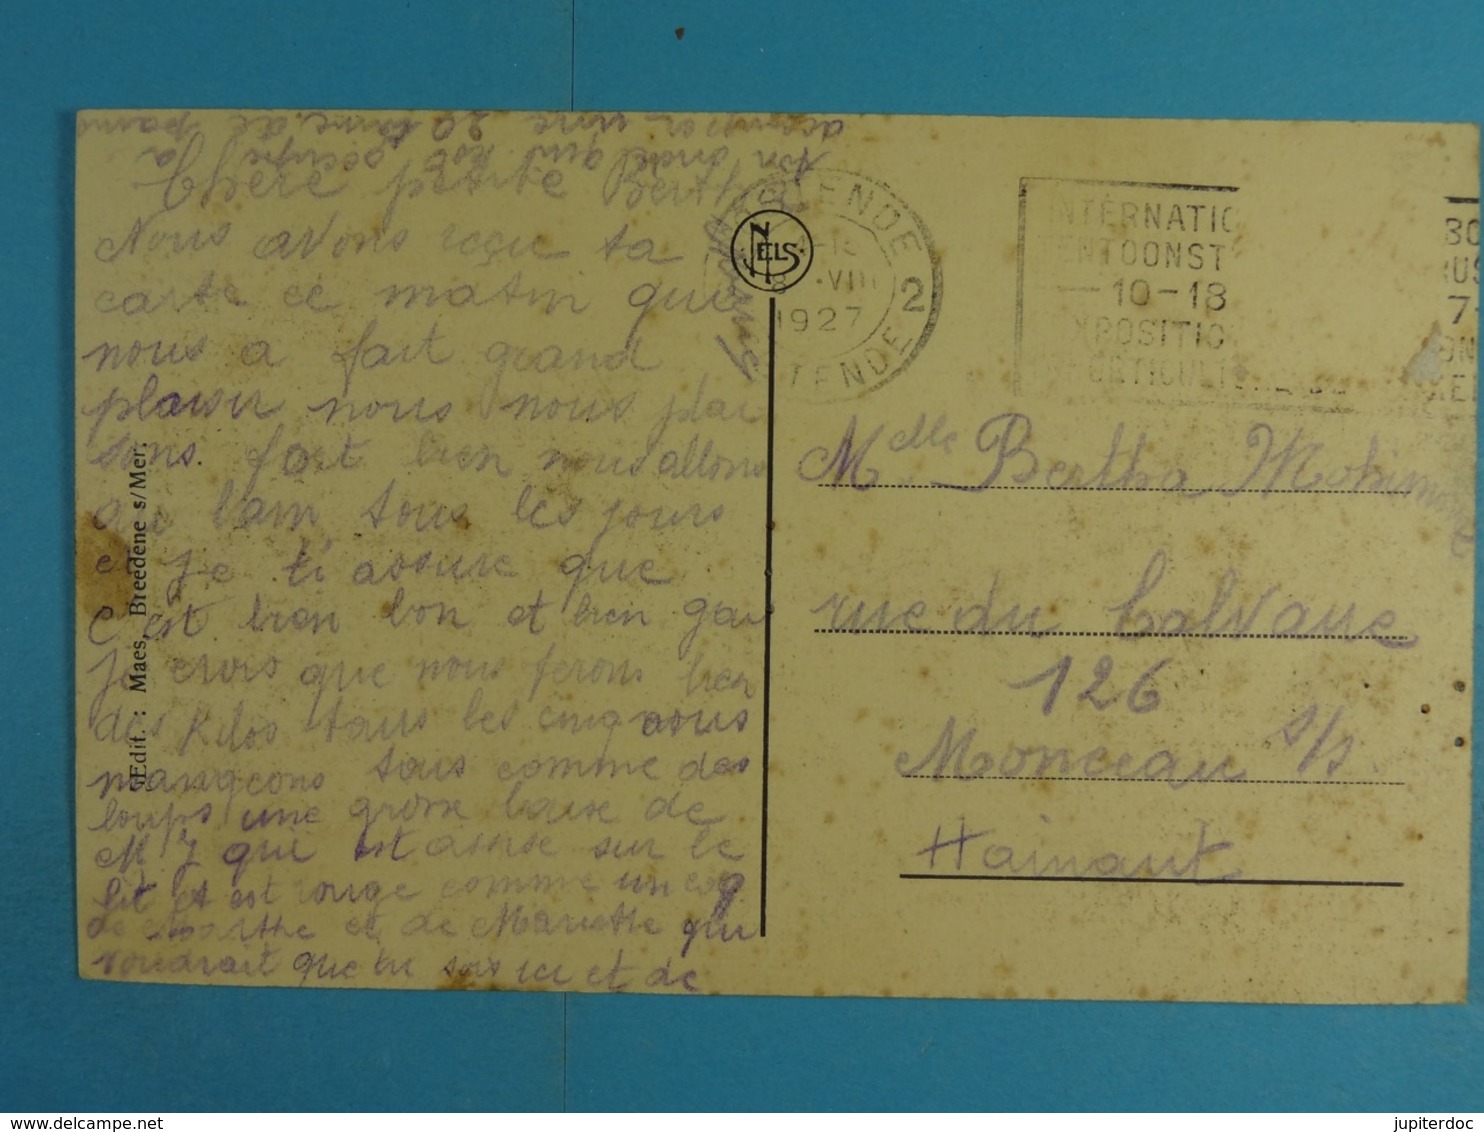 Chère petite Bertha
Nous avons reçu ta
carte ce matin qui
nous a fait grand
plaisir nous nous plai
sons fort bien nous allons
au bain tous les jours
et je ti assure que
c'est bien bon et bien gai
Je crois que nous ferons bien
des kilos tous les cinq nous
mangeons tous comme des
loups une grosse baise de
M J qui est assise sur le
lit et est rouge comme un coq
de Marthe et de Mariette qui
voudrait que tu sois ici et de
ton oncle qui est occupé
20
Edit.: Maes, Breedene s/Mer.
NELS
OOSTENDE 2
VIII
1927
OSTENDE
INTERNATIO
ENTOONST
—10-18
XPOSITIO
Mdlle Bertha
rue du Calvaire
126
Monceau s/s.
Hainaut
jupiterdoc